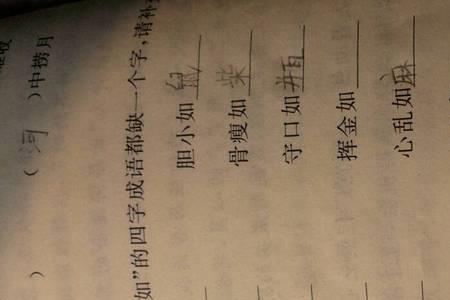 ） （ 河 ）中捞月
如”的四字成语都缺一个字，请补
胆小如鼠
骨瘦如柴
守口如瓶
挥金如
心乱如麻